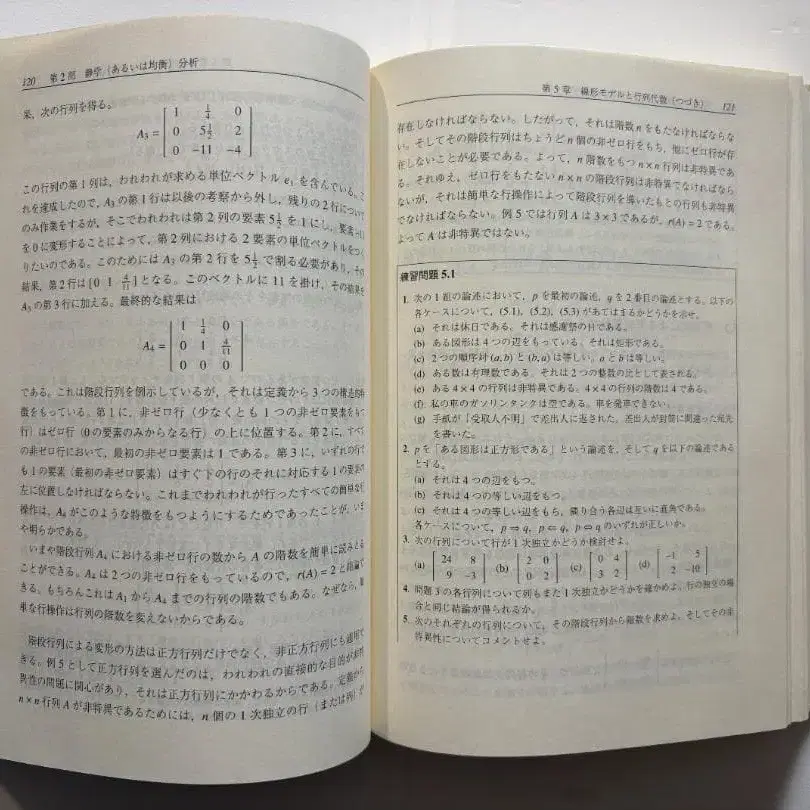 120 第2部 静学（あるいは均衡）分析
果，次の行列を得る。
A₃ = [1 1/4 0
0 5½ 2
0 −11 −4]
この行列の第1列は，われわれが求める単位ベクトル e₁ を含んでいる。こ
れを達成したので，A₃ の第1行は以後の考察から外し，残りの2行について
のみ作業をするが，そこでわれわれは第2列の要素 5½ を1にし，要素 −11
を0に変形することによって，第2列における2要素の単位ベクトルをつく
りたいのである。このためには A₃ の第2行を 5½ で割る必要があり，その
結果，第2行は [0 1 4/11] となる。このベクトルに11を掛け，その結果を
A₃ の第3行に加える。最終的な結果は
A₄ = [1 1/4 0
0 1 4/11
0 0 0]
である。これは階段行列を例示しているが，それは定義から3つの構造的特
徴をもっている。第1に，非ゼロ行（少なくとも1つの非ゼロ要素をもつ
行）はゼロ行（0の要素のみからなる行）の上に位置する。第2に，すべて
の非ゼロ行において，最初の非ゼロ要素は1である。第3に，いずれの行で
も1の要素（最初の非ゼロ要素）はすぐ下の行のそれに対応する1の要素の
左に位置しなければならない。これまでわれわれが行ったすべての簡単な行
操作は，A₄ がこのような特徴をもつようにするためであったことが，いま
や明らかである。
いまや階段行列 A₄ における非ゼロ行の数から A の階数を簡単に読みとる
ことができる。A₄ は2つの非ゼロ行をもっているので，r(A)＝2と結論で
きる。もちろんこれは A₁ から A₄ までの行列の階数でもある。なぜなら，簡
単な行操作は行列の階数を変えないからである。
階段行列による変形の方法は正方行列だけでなく，非正方行列にも適用で
きる。例5として正方行列を選んだのは，われわれの直接的な目的が非特
異性の問題に関心があり，それは正方行列にかかわるからである。定義から
n×n 行列 A が非特異であるためには，n 個の1次独立の行（または列）が
第5章 線形モデルと行列代数（つづき） 121
存在しなければならない。したがって，それは階数 n をもたなければならな
い。そしてその階段行列はちょうど n 個の非ゼロ行をもち，他にゼロ行が存
在しないことが必要である。よって，n 階数をもつ n×n 行列は非特異であ
る。それゆえ，ゼロ行をもたない n×n の階段行列は非特異でなければなら
ないが，それは簡単な行操作によって階段行列を導いたもとの行列も非特異
でなければならない。例5では行列 A は3×3であるが，r(A)＝2である。
よって A は非特異ではない。
練習問題 5.1
1. 次の1組の論述において，p を最初の論述，q を2番目の論述とする。以下の
各ケースについて，(5.1), (5.2), (5.3) があてはまるかどうかを示せ。
(a) それは休日である。それは感謝祭の日である。
(b) ある図形は4つの辺をもっている。それは矩形である。
(c) 2つの順序対 (a, b) と (b, a) は等しい。a と b は等しい。
(d) ある数は有理数である。それは2つの整数の比として表される。
(e) ある4×4の行列は非特異である。4×4の行列の階数は4である。
(f) 私の車のガソリンタンクは空である。車を発車できない。
(g) 手紙が「受取人不明」で差出人に返された。差出人が封筒に間違った宛先
を書いた。
2. p を「ある図形は正方形である」という論述を，そして q を以下の論述である
とする。
(a) それは4つの辺をもつ。
(b) それは4つの等しい辺をもつ。
(c) それは4つの等しい辺をもち，隣り合う各辺は互いに直角である。
各ケースについて，p⇒q, p⇐q, p⇔q のいずれが正しいか。
3. 次の行列について行が1次独立かどうか検討せよ。
(a) [24 8
9 −3] (b) [2 0
0 2] (c) [0 4
3 2] (d) [−1 5
2 −10]
4. 問題3の各行列について列もまた1次独立かどうかを確かめよ。行の独立の場
合と同じ結論が得られるか。
5. 次のそれぞれの行列について，その階段行列から階数を求めよ，そしてその非
特異性についてコメントせよ。